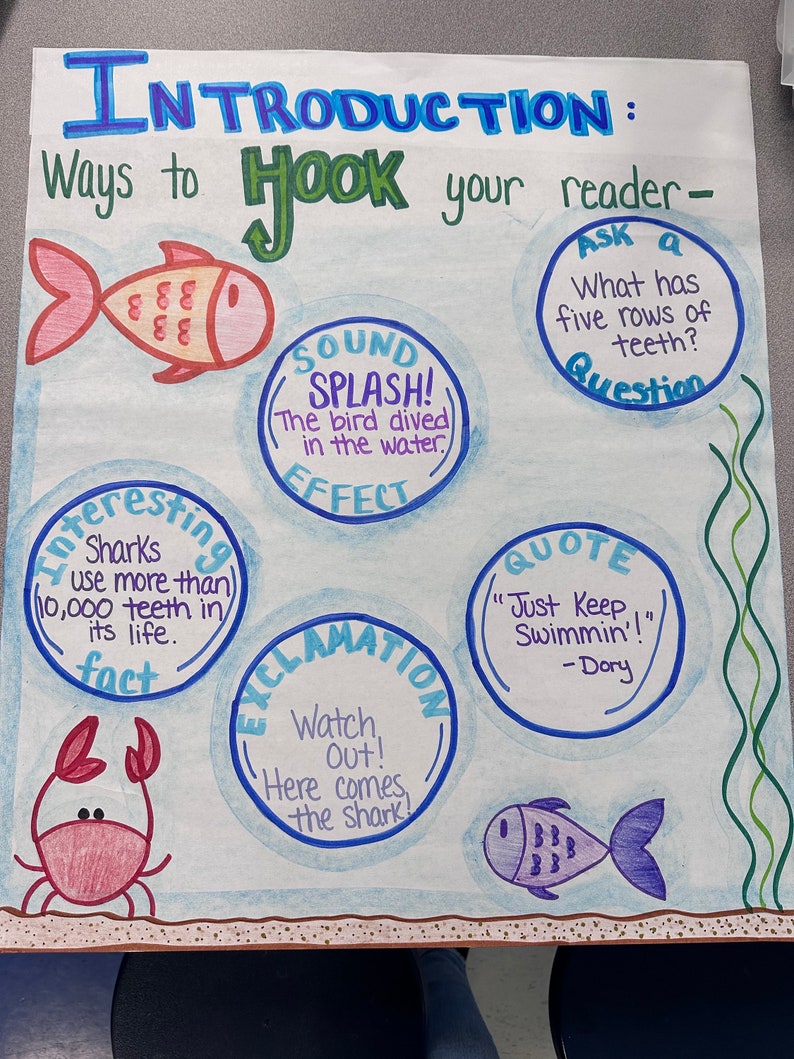 INTRODUCTION:
Ways to HOOK your reader-
ASK a
What has
five rows of
teeth?
Question
SOUND
SPLASH!
The bird dived
in the water.
EFFECT
Interesting
Sharks
use more than
10,000 teeth in
its life.
fact
QUOTE
"Just Keep
Swimmin'!"
-Dory
EXCLAMATION
Watch
Out!
Here comes
the shark!